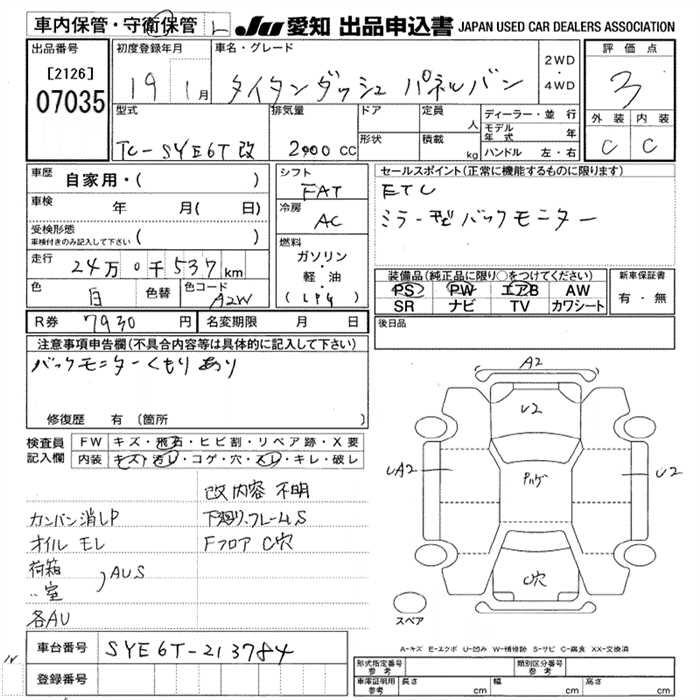 車内保管・守衛保管 L JU 愛知 出品申込書 JAPAN USED CAR DEALERS ASSOCIATION
出品番号 初度登録年月 車名・グレード 評価点
[2126] 19 1月 タイタンダッシュ パネルバン 2WD・4WD 3
07035
型式 排気量 ドア 定員 人 ディーラー・並行 外装 内装
モデル年式 年
TC-SYE6T改 2000 CC 形状 積載 kg ハンドル 左・右 C C
車歴 自家用・( ) シフト FAT セールスポイント(正常に機能するものに限ります)
車検 年 月(日) 冷房 AC ETC
受検形態 車検付きのみ記入して下さい ( ) ミラー型バックモニター
燃料 ガソリン・軽・油 (LPG)
走行 24万0千537km 装備品(純正品に限り○をつけてください) 新車保証書
色 白 色替 色コード A2W PS PW エアB AW 有・無
SR ナビ TV カワシート
R券 7930円 名変期限 月 日 後日品
注意事項申告欄(不具合内容等は具体的に記入して下さい)
バックモニターくもりあり
修復歴 有 (箇所 )
検査員記入欄 FW キズ・飛石・ヒビ割・リペア跡・X要
内装 キズ・汚レ・コゲ・穴・スレ・キレ・破レ
改内容 不明
カンバン消しP 下廻り、フレームS
オイル モレ Fフロア C穴
荷箱
〃室 AUS
各AU
A2
U2
UA2 U2
C穴
スペア
A-キズ E-エクボ U-凹み W-補修跡 S-サビ C-腐食 XX-交換済
車台番号 SYE6T-213784
登録番号
形式指定番号 参考 類別区分番号 参考
車庫証明用 参考 長さ cm 幅 cm 高さ cm